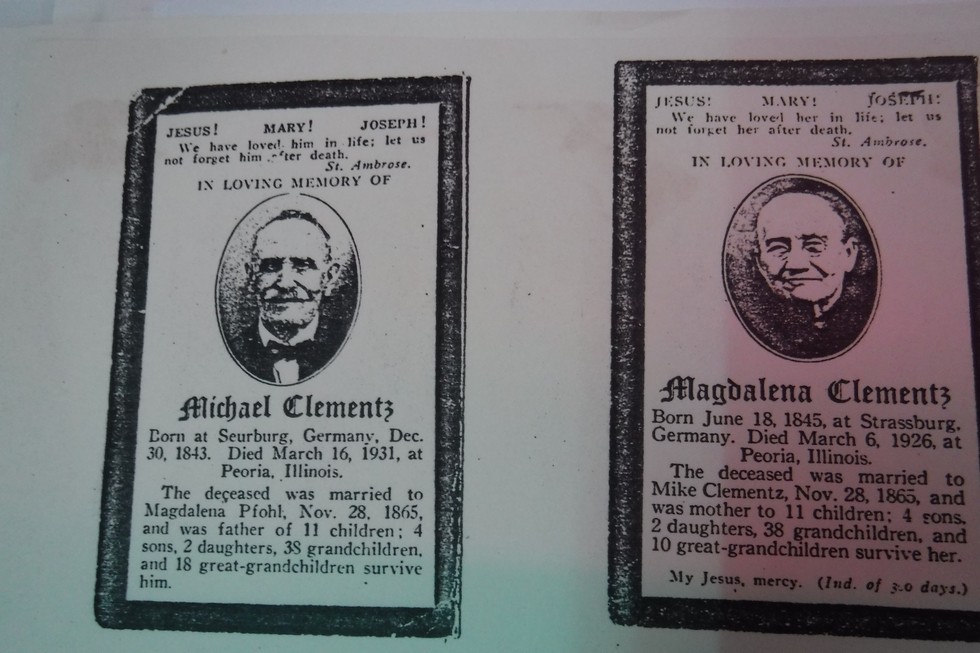 JESUS! MARY! JOSEPH!
We have loved him in life; let us
not forget him after death.
St. Ambrose.
IN LOVING MEMORY OF
Michael Clementz
Born at Seurburg, Germany, Dec.
30, 1843. Died March 16, 1931, at
Peoria, Illinois.
The deceased was married to
Magdalena Pfohl, Nov. 28, 1865,
and was father of 11 children; 4
sons, 2 daughters, 38 grandchildren,
and 18 great-grandchildren survive
him.
JESUS! MARY! JOSEPH!
We have loved her in life; let us
not forget her after death.
St. Ambrose.
IN LOVING MEMORY OF
Magdalena Clementz
Born June 18, 1845, at Strassburg,
Germany. Died March 6, 1926, at
Peoria, Illinois.
The deceased was married to
Mike Clementz, Nov. 28, 1865, and
was mother to 11 children; 4 sons,
2 daughters, 38 grandchildren, and
10 great-grandchildren survive her.
My Jesus, mercy. (Ind. of days.)